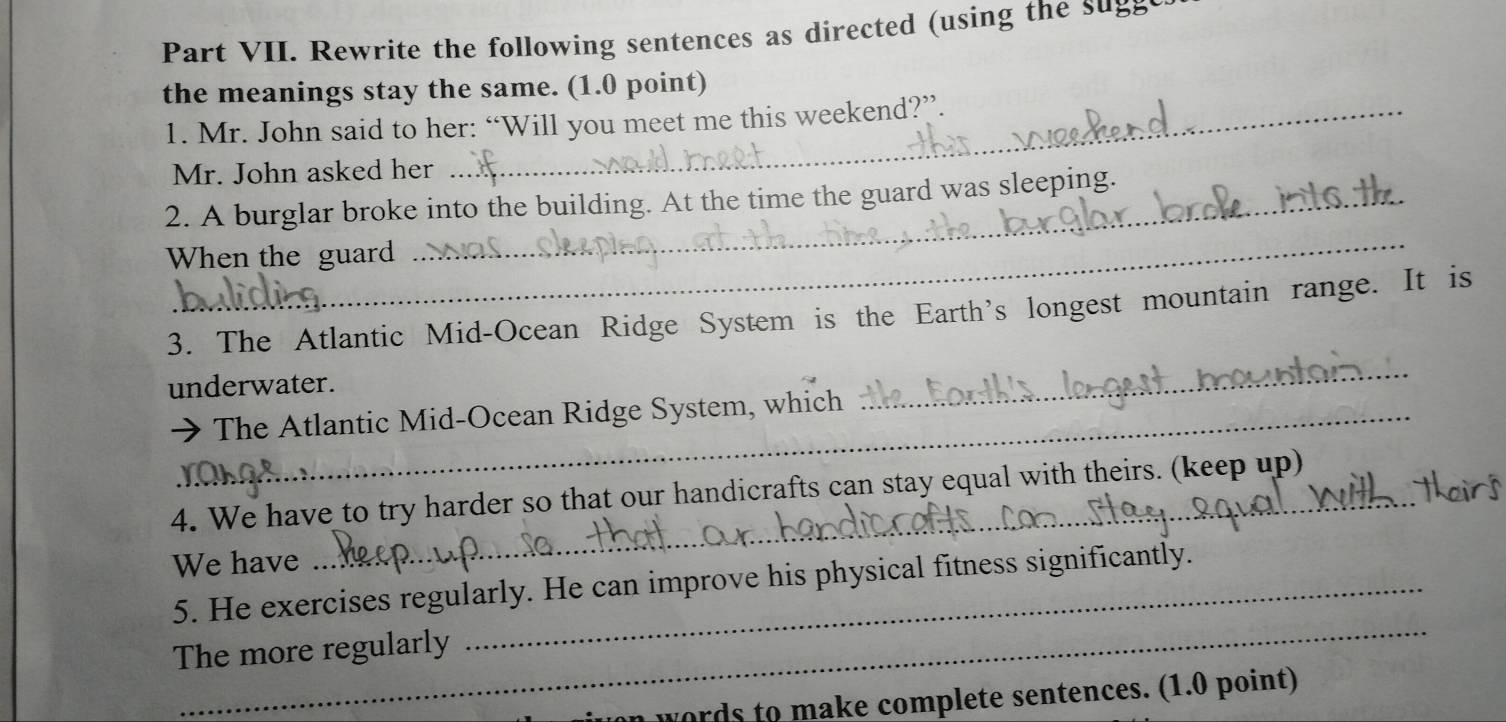 Part VII. Rewrite the following sentences as directed (using the
the meanings stay the same. (1.0 point)
1. Mr. John said to her: “Will you meet me this weekend?”.
Mr. John asked her ....if would meet this weekend.
2. A burglar broke into the building. At the time the guard was sleeping.
When the guard was sleeping at the time, the burglar broke into the
buliding
3. The Atlantic Mid-Ocean Ridge System is the Earth’s longest mountain range. It is
underwater.
→ The Atlantic Mid-Ocean Ridge System, which the Earth's longest mountain
range.
4. We have to try harder so that our handicrafts can stay equal with theirs. (keep up)
We have keep up so that our handicrafts can stay equal with theirs
5. He exercises regularly. He can improve his physical fitness significantly.
The more regularly
words to make complete sentences. (1.0 point)